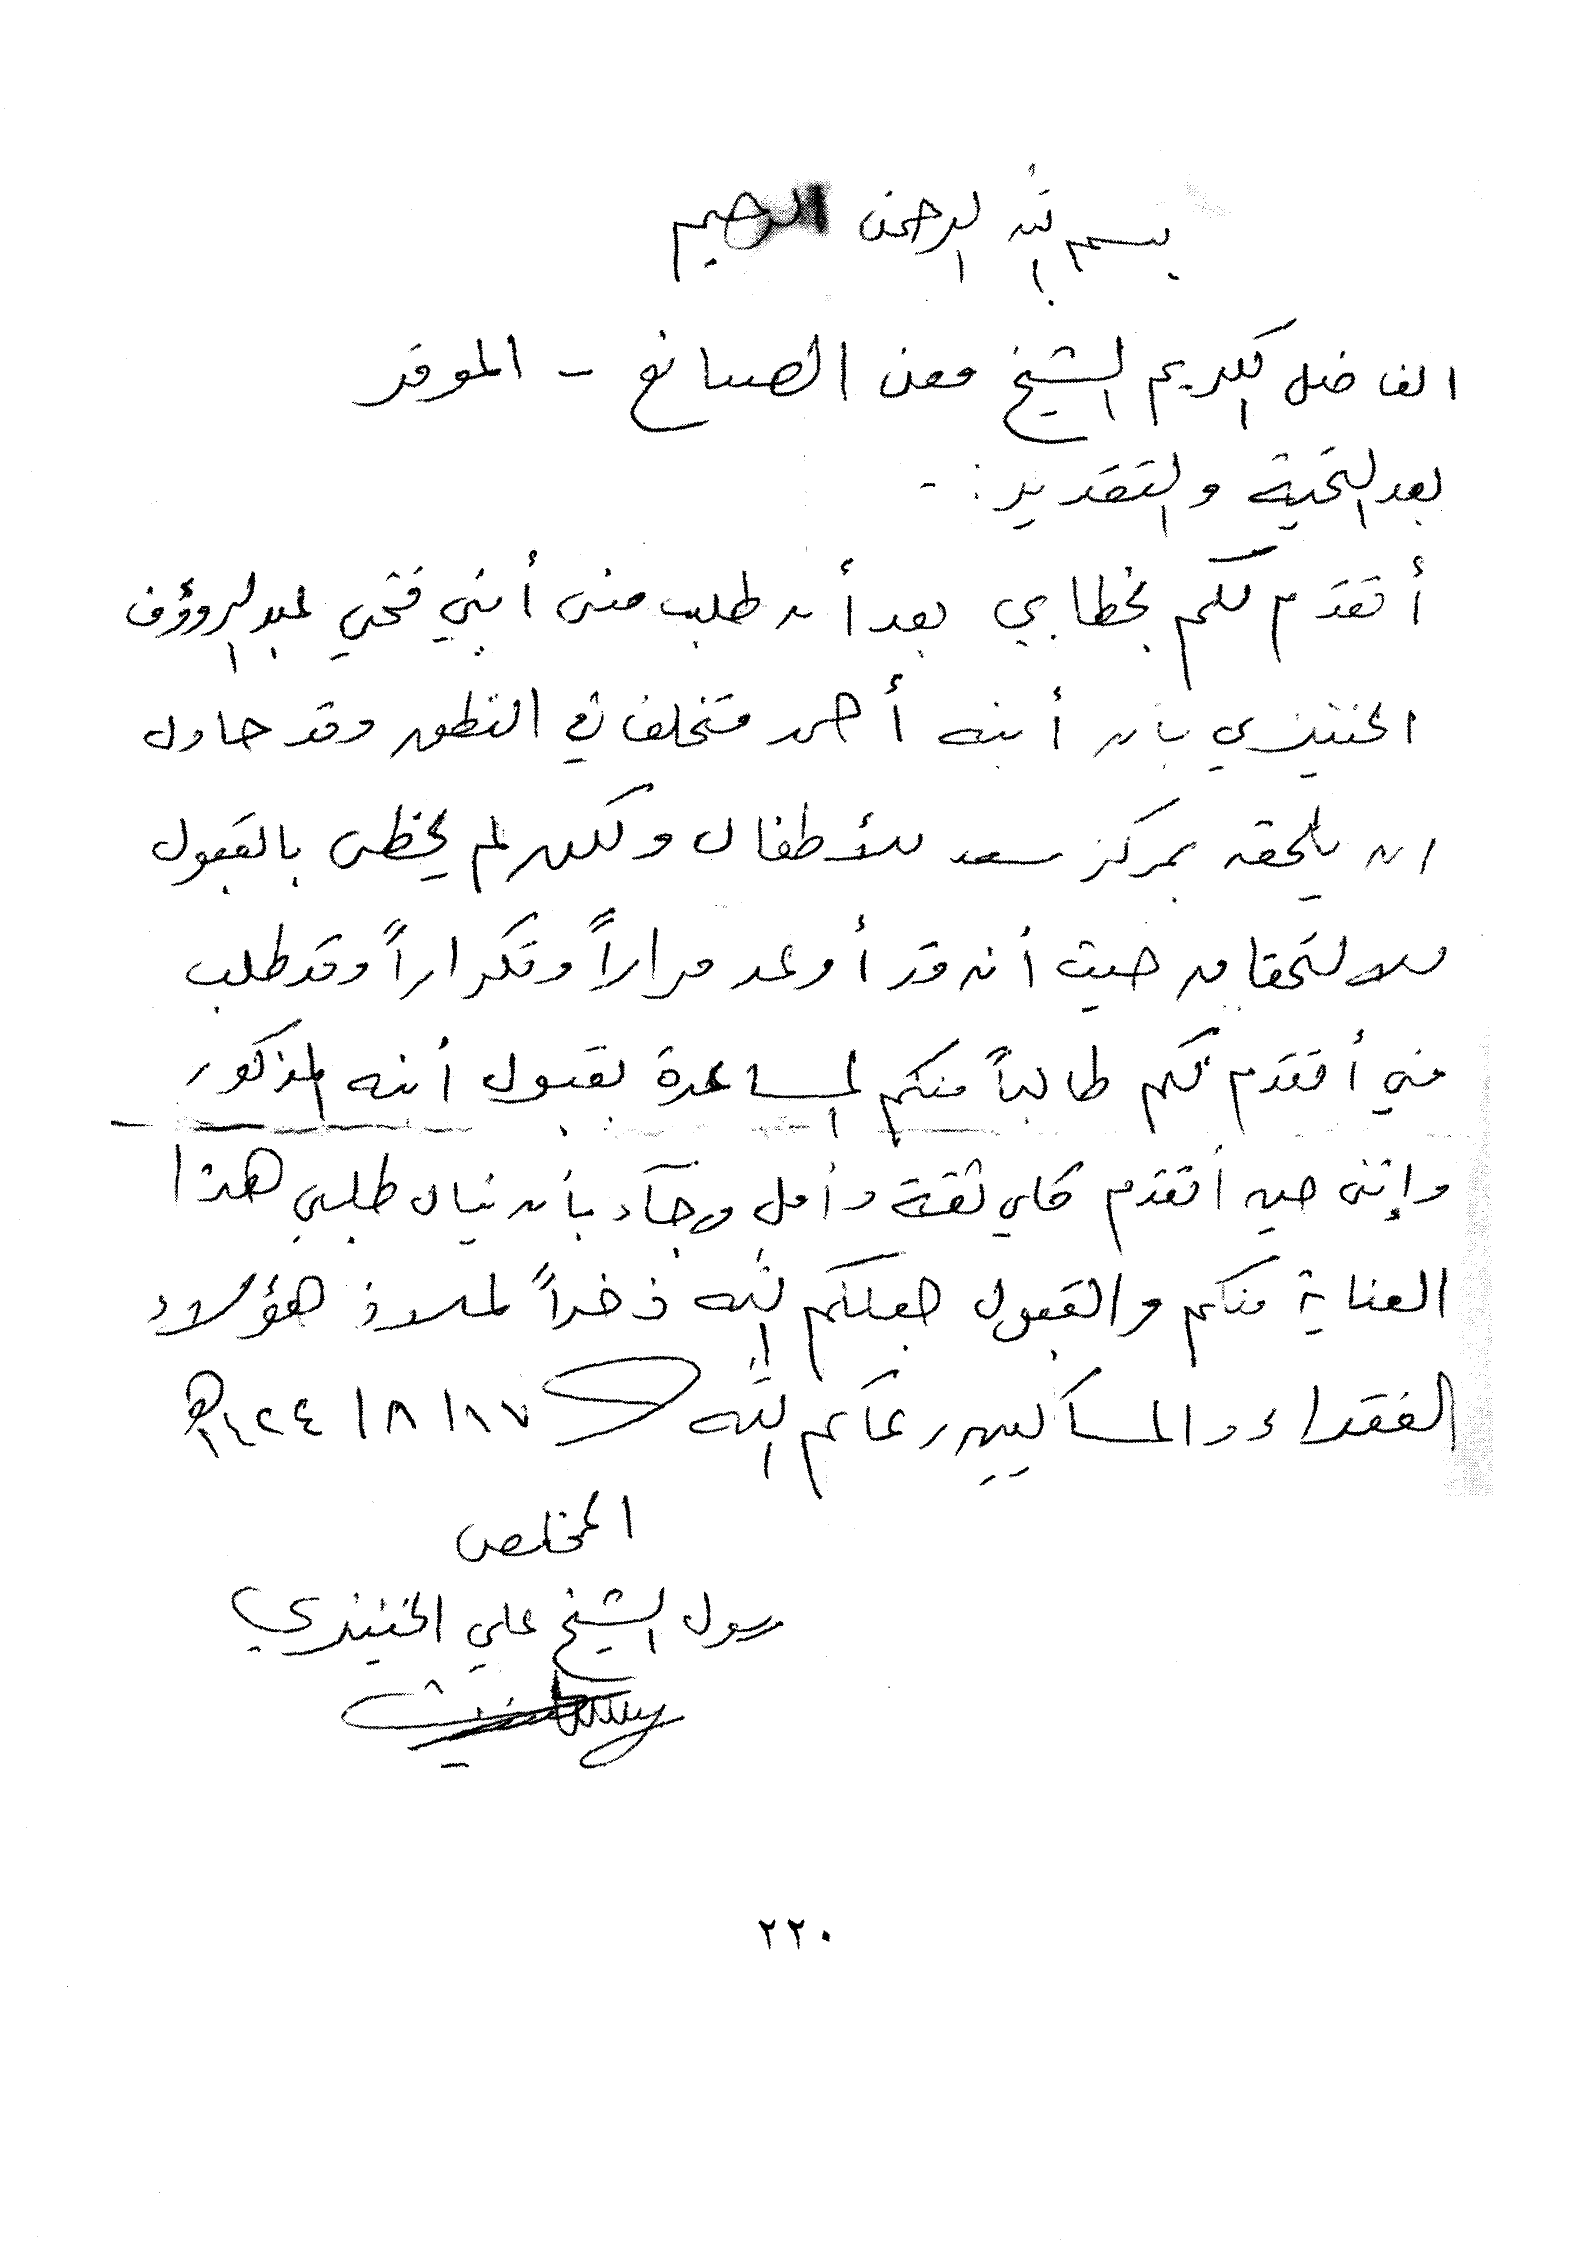 بسم الله الرحمن الرحيم
الفاضل الكريم الشيخ معن الصانع - الموقر
بعد التحية والتقدير :-
أتقدم لكم بخطابي بعد أن طلب منى أبني فتحي عبد الرووؤف
الخنيزي بأن أبنه أحمد متخلف في النطق وقد حاول
ان يلحقه بمركز سعد للأطفال ولكن لم يحظى بالقبول
للالتحاق حيث أنه قد أوعد مراراً وتكراراً وقد طلب
مني أتقدم لكم طالباً منكم المساعدة بقبول أبنه المذكور
وإنني حين أتقدم كلي ثقة وأمل ورجآء بأن ينال طلبي هذا
العناية منكم والقبول جعلكم الله ذخراً لملاذ هؤلاء
الفقراء والمساكين رعاكم الله ١٧/٨/١٤٢٤هـ
المخلص
رسول الشيخ علي الخنيزي
٢٢٠